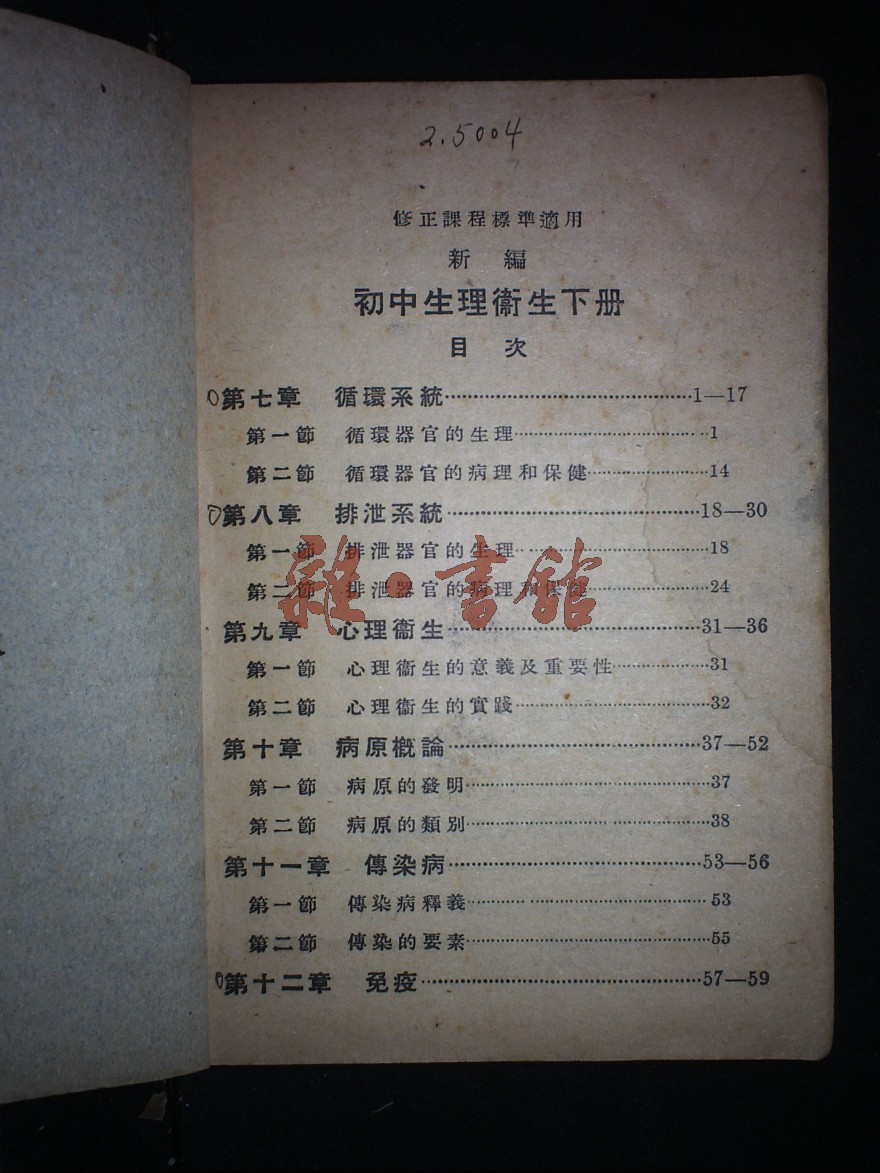 2.5004
修正課程標準適用
新編
初中生理衞生下册
目次
第七章 循環系統……1—17
第一節 循環器官的生理……1
第二節 循環器官的病理和保健……14
第八章 排泄系統……18—30
第一節 排泄器官的生理……18
第二節 排泄器官的病理和保健……24
雜·書館
第九章 心理衞生……31—36
第一節 心理衞生的意義及重要性……31
第二節 心理衞生的實踐……32
第十章 病原概論……37—52
第一節 病原的發明……37
第二節 病原的類別……38
第十一章 傳染病……53—56
第一節 傳染病釋義……53
第二節 傳染的要素……55
第十二章 免疫……57—59